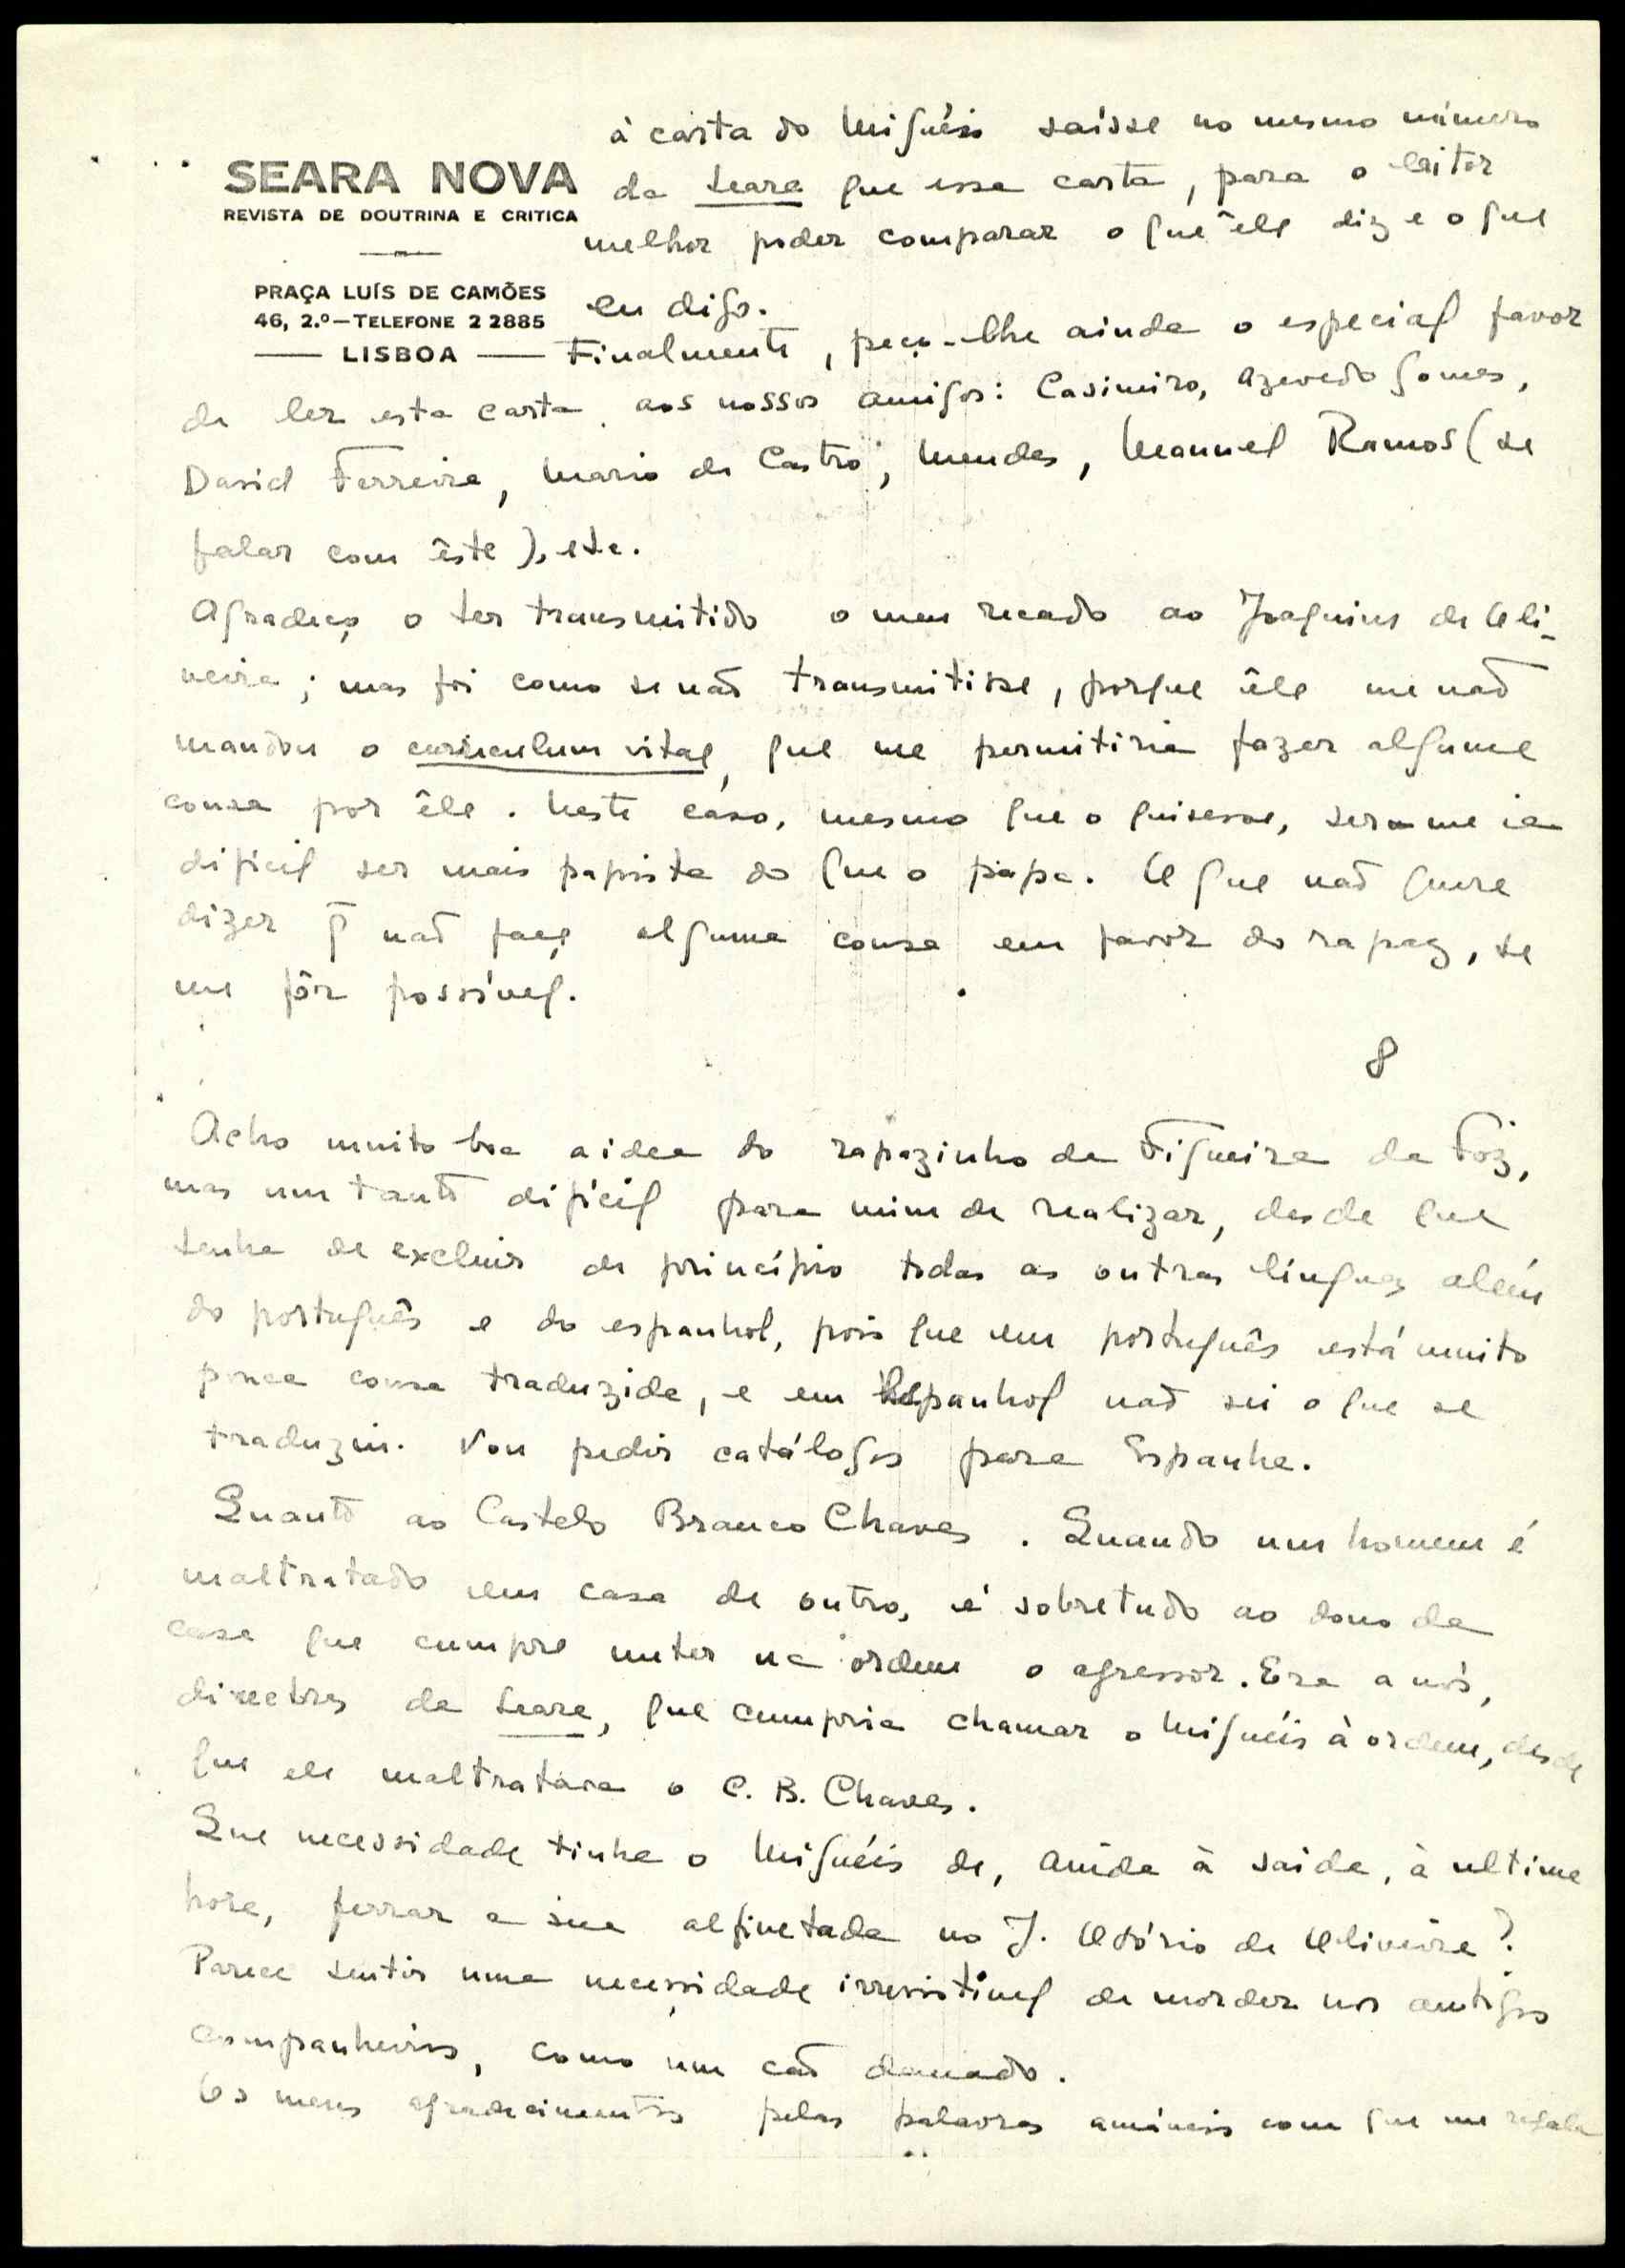 SEARA NOVA
REVISTA DE DOUTRINA E CRITICA
PRAÇA LUÍS DE CAMÕES
46, 2.º — TELEFONE 2 2885
LISBOA
à carta do Miguéis saísse no mesmo número
da Seara que essa carta, para o leitor
melhor poder comparar o que êle diz e o que
eu digo.
Finalmente, peço-lhe ainda o especial favor
de ler esta carta aos nossos amigos: Casimiro, Azevedo Gomes,
David Ferreira, Mario de Castro, Mendes, Manuel Ramos (se
falar com êste), etc.
Agradeço o ter transmitido o meu recado ao Joaquim de Oli-
veira; mas foi como se não transmitisse, porque êle me não
mandou o curriculum vitae, que me permitiria fazer alguma
cousa por êle. Neste caso, mesmo que o quisesse, ser-me-ia
dificil ser mais papista do que o papa. O que não quere
dizer q̃ não faça alguma cousa em favor do rapaz, se
me fôr possível.
8
Acho muito boa a idea do rapazinho da Figueira da Foz,
mas um tanto dificil para mim de realizar, desde que
tenha de excluir de princípio todas as outras línguas além
do português e do espanhol, pois que em português está muito
pouca cousa traduzida, e em Espanhol não sei o que se
traduziu. Vou pedir catálogos para Espanha.
Quanto ao Castelo Branco Chaves. Quando um homem é
maltratado em casa de outro, é sobretudo ao dono da
casa que cumpre meter na ordem o agressor. Era a nós,
directores da Seara, que cumpria chamar o Miguéis à ordem, desde
que ele maltratara o C. B. Chaves.
Que necessidade tinha o Miguéis de, ainda à saida, à ultima
hora, ferrar a sua alfinetada no J. Osório de Oliveira?
Parece sentir uma necessidade irresistivel de morder nos antigos
companheiros, como um cão danado.
Os meus agradecimentos pelas palavras amáveis com que me regala